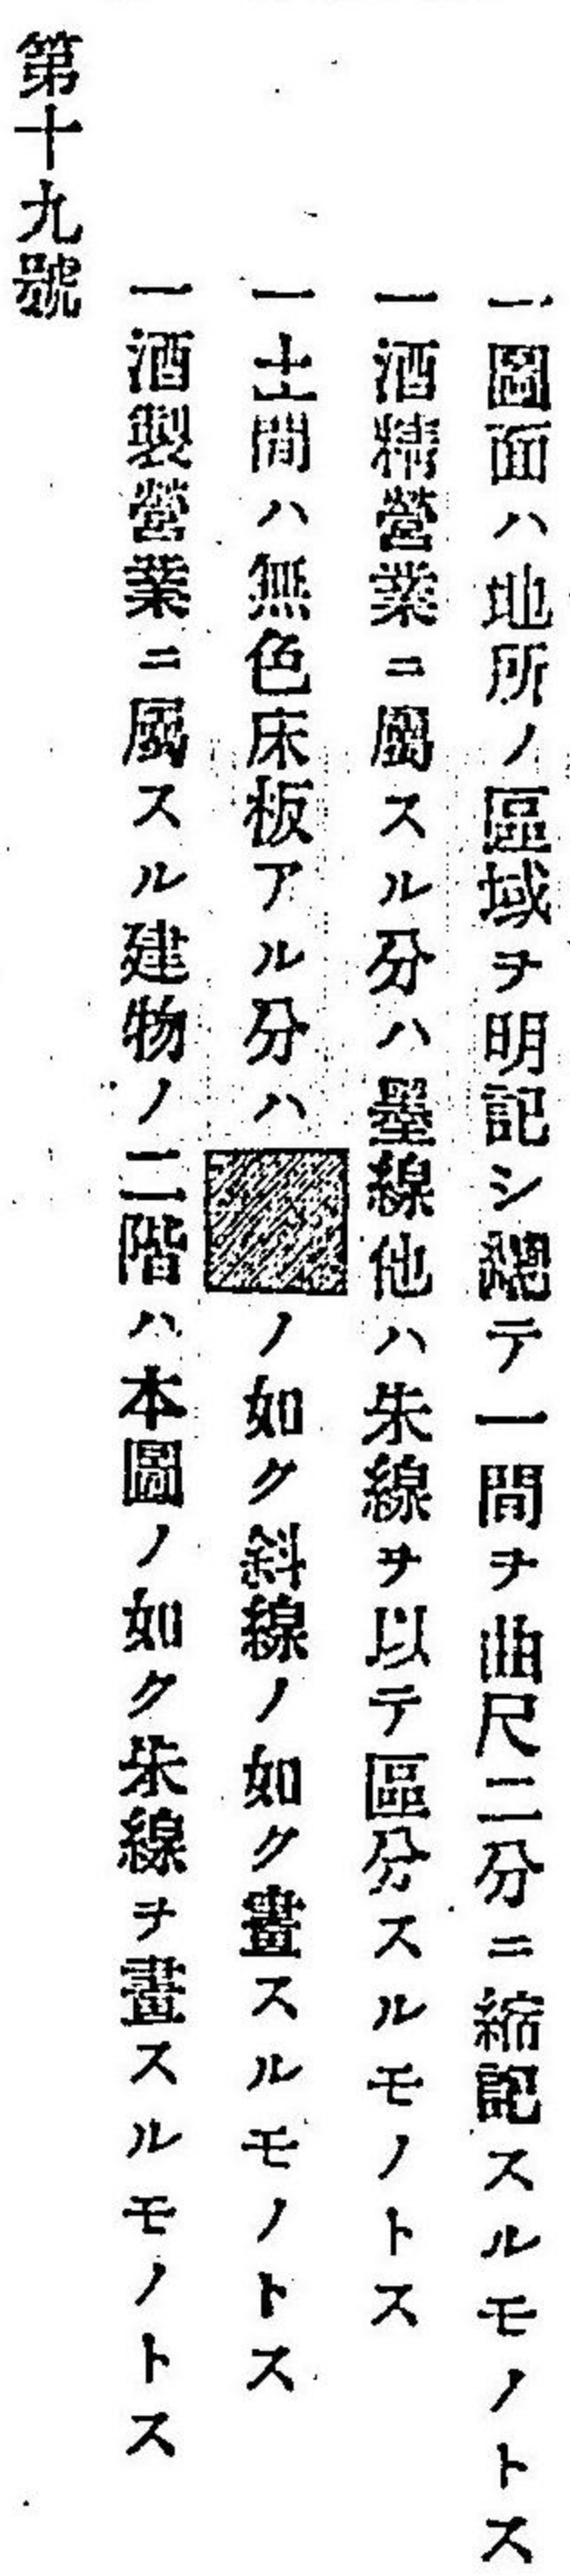 一圖面ハ地所ノ區域ヲ明記シ總テ一間ヲ曲尺二分ニ縮記スルモノトス
一酒精營業ニ屬スル分ハ墨線他ハ朱線ヲ以テ區分スルモノトス
一土間ハ無色床板アル分ハノ如ク斜線ノ如ク畫スルモノトス
一酒製營業ニ屬スル建物ノ二階ハ本圖ノ如ク朱線ヲ畫スルモノトス
第十九號